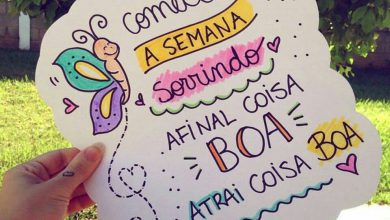 A SEMANA
SORRINDO
AFINAL COISA
BOA
ATRAI COISA BOA